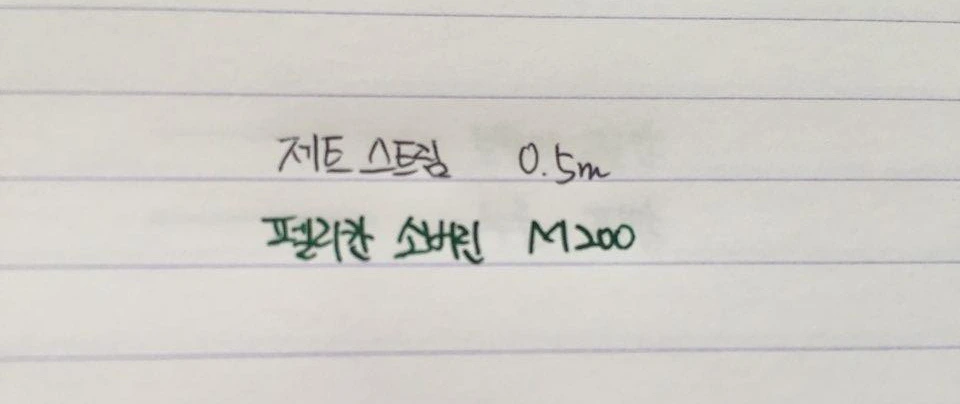 제트스트림 0.5m
펠리칸 소버린 M200